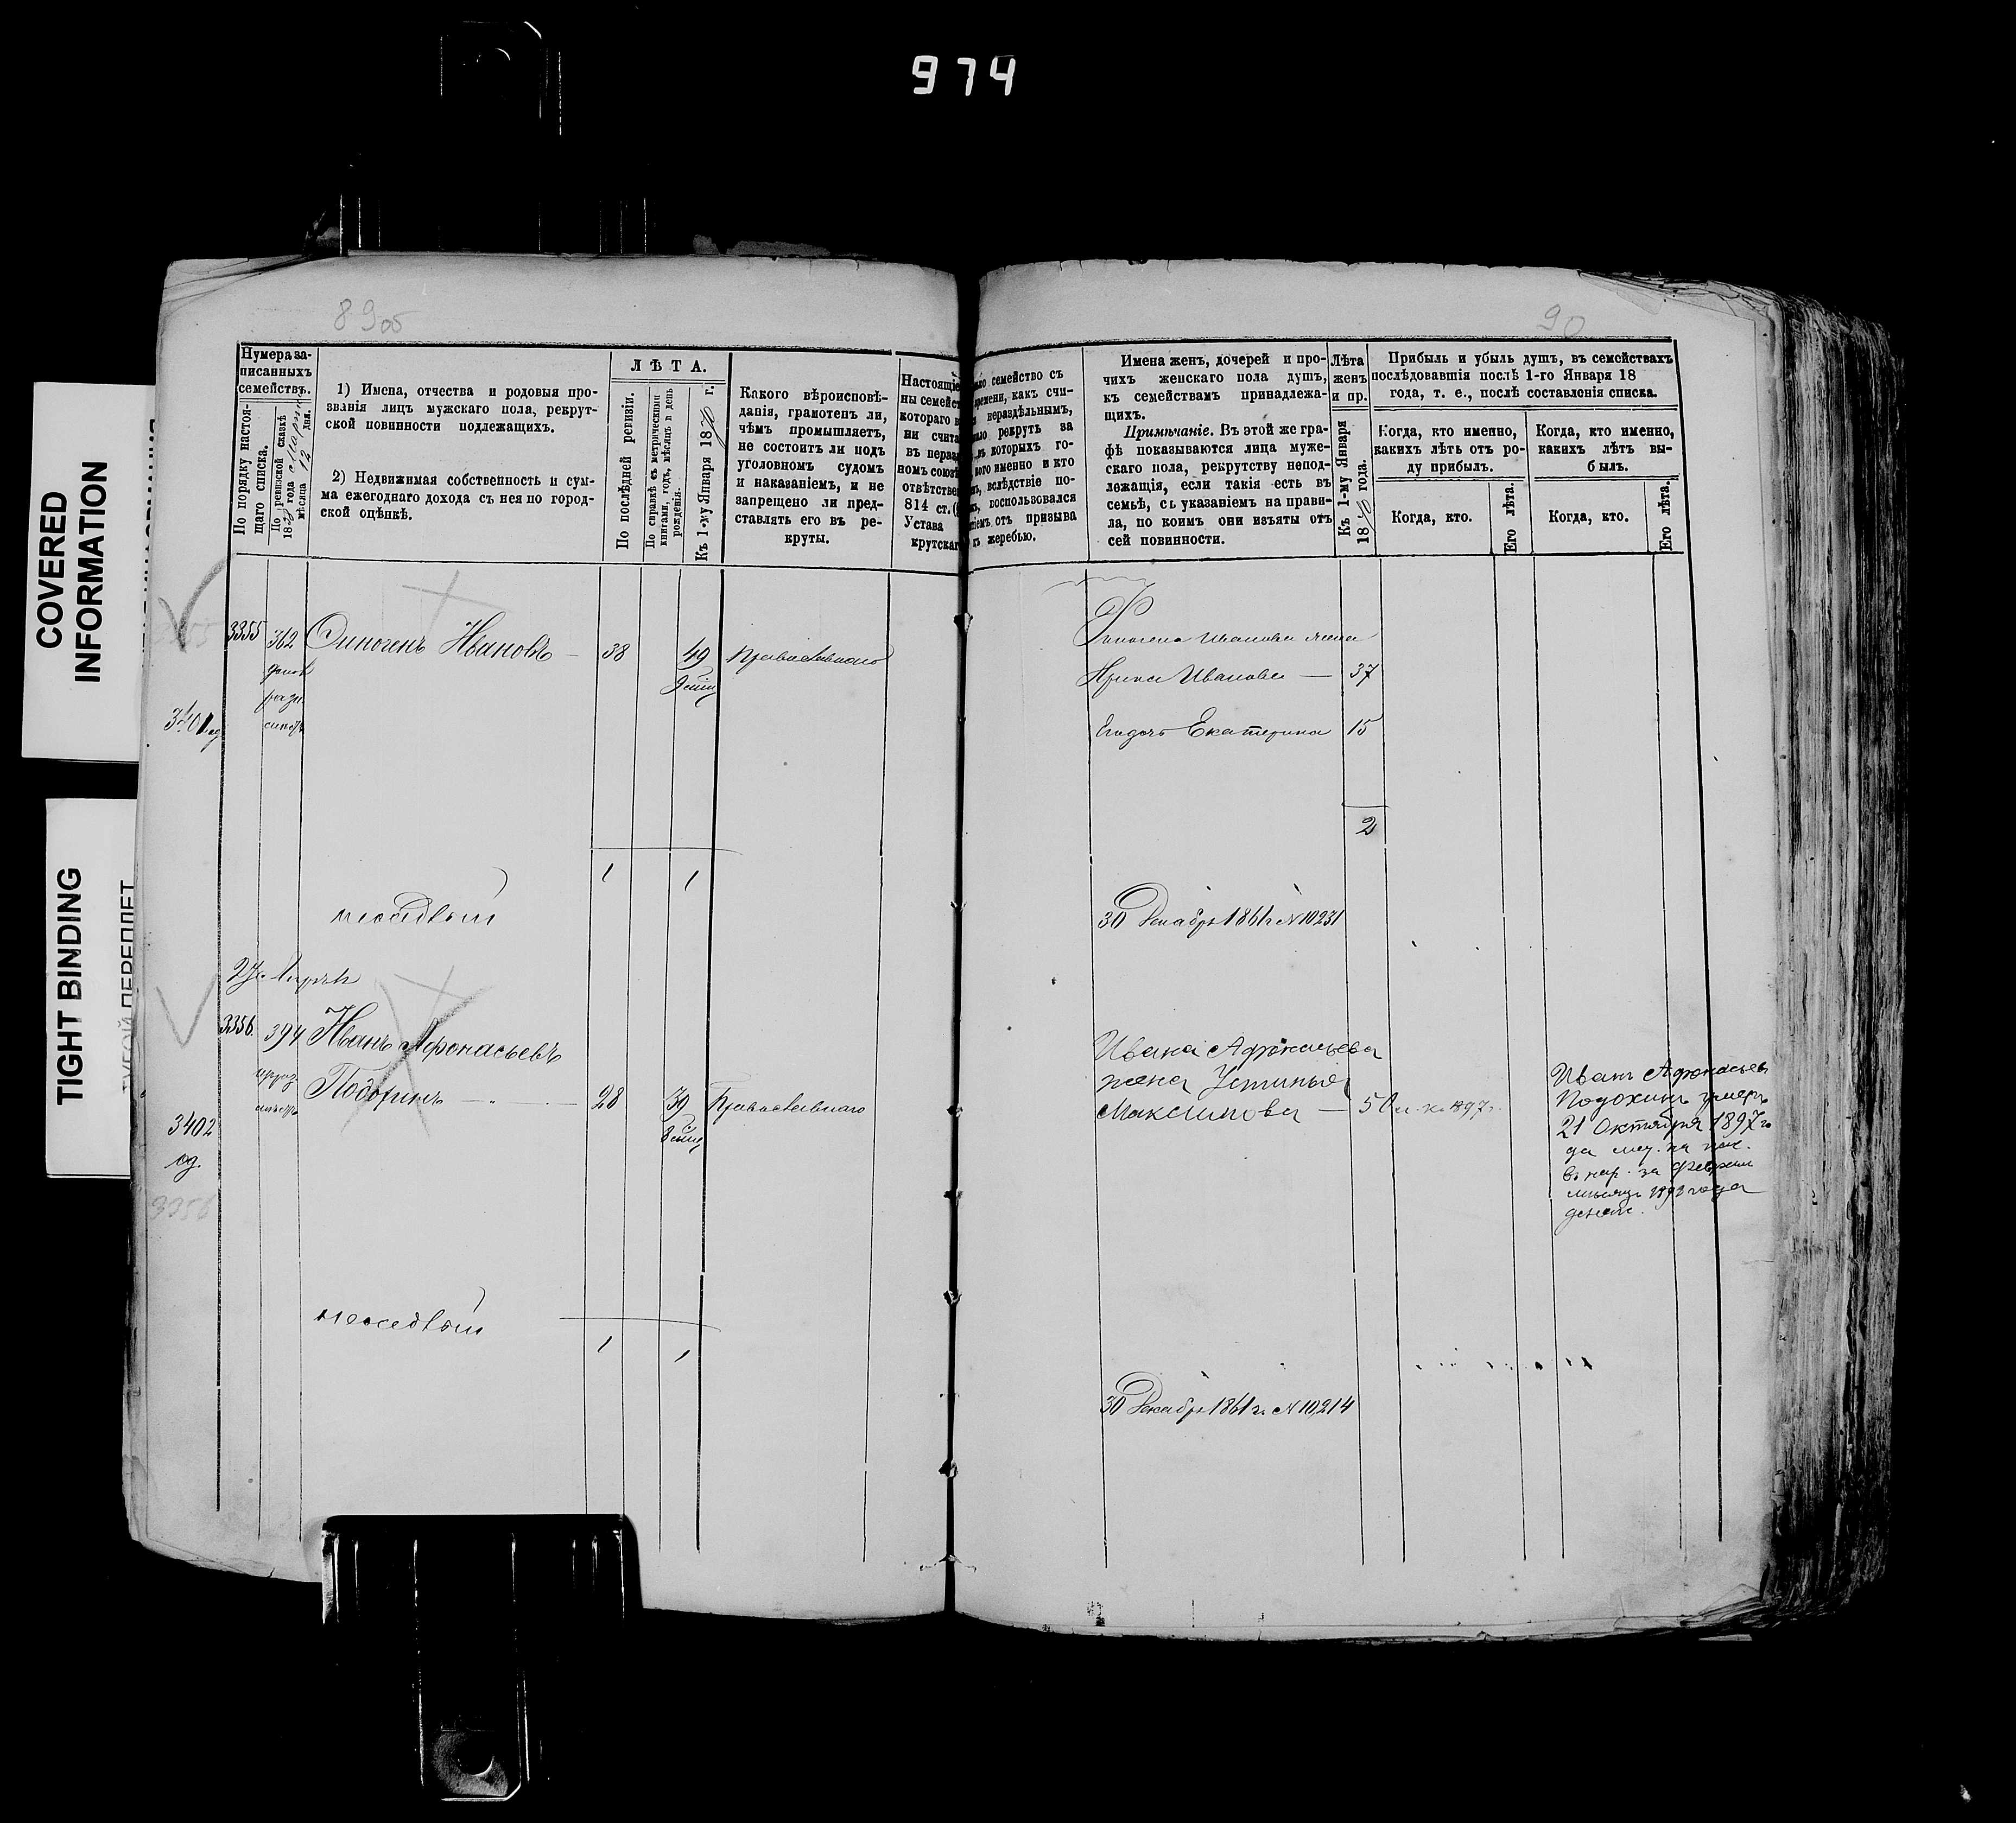 974
COVERED
INFORMATION
TIGHT BINDING
ТУГОЙ ПЕРЕПЛЕТ
89об
Нумера за-
писанныхъ
семействъ.
По порядку настоя-
щаго списка.
По ревизской сказкѣ
18 года Марта
мѣсяца 12 дня.
1) Имена, отчества и родовыя про-
званія лицъ мужскаго пола, рекрут-
ской повинности подлежащихъ.
2) Недвижимая собственность и сум-
ма ежегоднаго дохода съ нея по город-
ской оцѣнкѣ.
ЛѢТА.
По послѣдней ревизіи.
По справкѣ съ метрическими
книгами, годъ, мѣсяцъ и день
рожденія.
Къ 1-му Января 1870 г.
Какого вѣроисповѣ-
данія, грамотенъ ли,
чѣмъ промышляетъ,
не состоитъ ли подъ
уголовномъ судомъ
и наказаніемъ, и не
запрещено ли пред-
ставлять его въ ре-
круты.
Настоящіе
ны семейст
котораго в
ни счита
въ нераз
номъ союз
отвѣтстве
814 ст.
Устава
крутскаг
3355
362
Финогенъ Ивановъ —
38
49
Православнаго
3401
1
1
мѣсядвыій
3356
394
Иванъ Афонасьевъ
Подохинъ
28
39
Православнаго
3402
од.
3356
1
1
90
семейство съ
времени, какъ счи-
нераздѣльнымъ,
рекрутъ за
въ которыхъ го-
кого именно и кто
вслѣдствіе по-
воспользовался
тіемъ отъ призыва
жеребью.
Имена женъ, дочерей и про-
чихъ женскаго пола душъ,
къ семействамъ принадлежа-
щихъ.
Примѣчаніе. Въ этой же гра-
фѣ показываются лица муже-
скаго пола, рекрутству непод-
лежащія, если такія есть въ
семьѣ, съ указаніемъ на прави-
ла, по коимъ они изъяты отъ
сей повинности.
Лѣта
женъ
и пр.
Къ 1-му Января
1870 года.
Прибыль и убыль душъ, въ семействахъ
послѣдовавшія послѣ 1-го Января 18
года, т. е., послѣ составленія списка.
Когда, кто именно,
какихъ лѣтъ отъ ро-
ду прибылъ.
Когда, кто именно,
какихъ лѣтъ вы-
былъ.
Когда, кто.
Его лѣта.
Когда, кто.
Его лѣта.
Финогена Иванова жена
Ирина Иванова — 37
Екатерина 15
2
30 Декабря 1861 г. № 10231
Ивана Афонасьева
жена Устинья
Максимова — 50
1897 г.
Иванъ Афонасьевъ
Подохинъ умеръ
21 Октября 1897 го
да
за Февраль
мѣсяцъ 1898 года
30 Декабря 1861 г. № 10,214